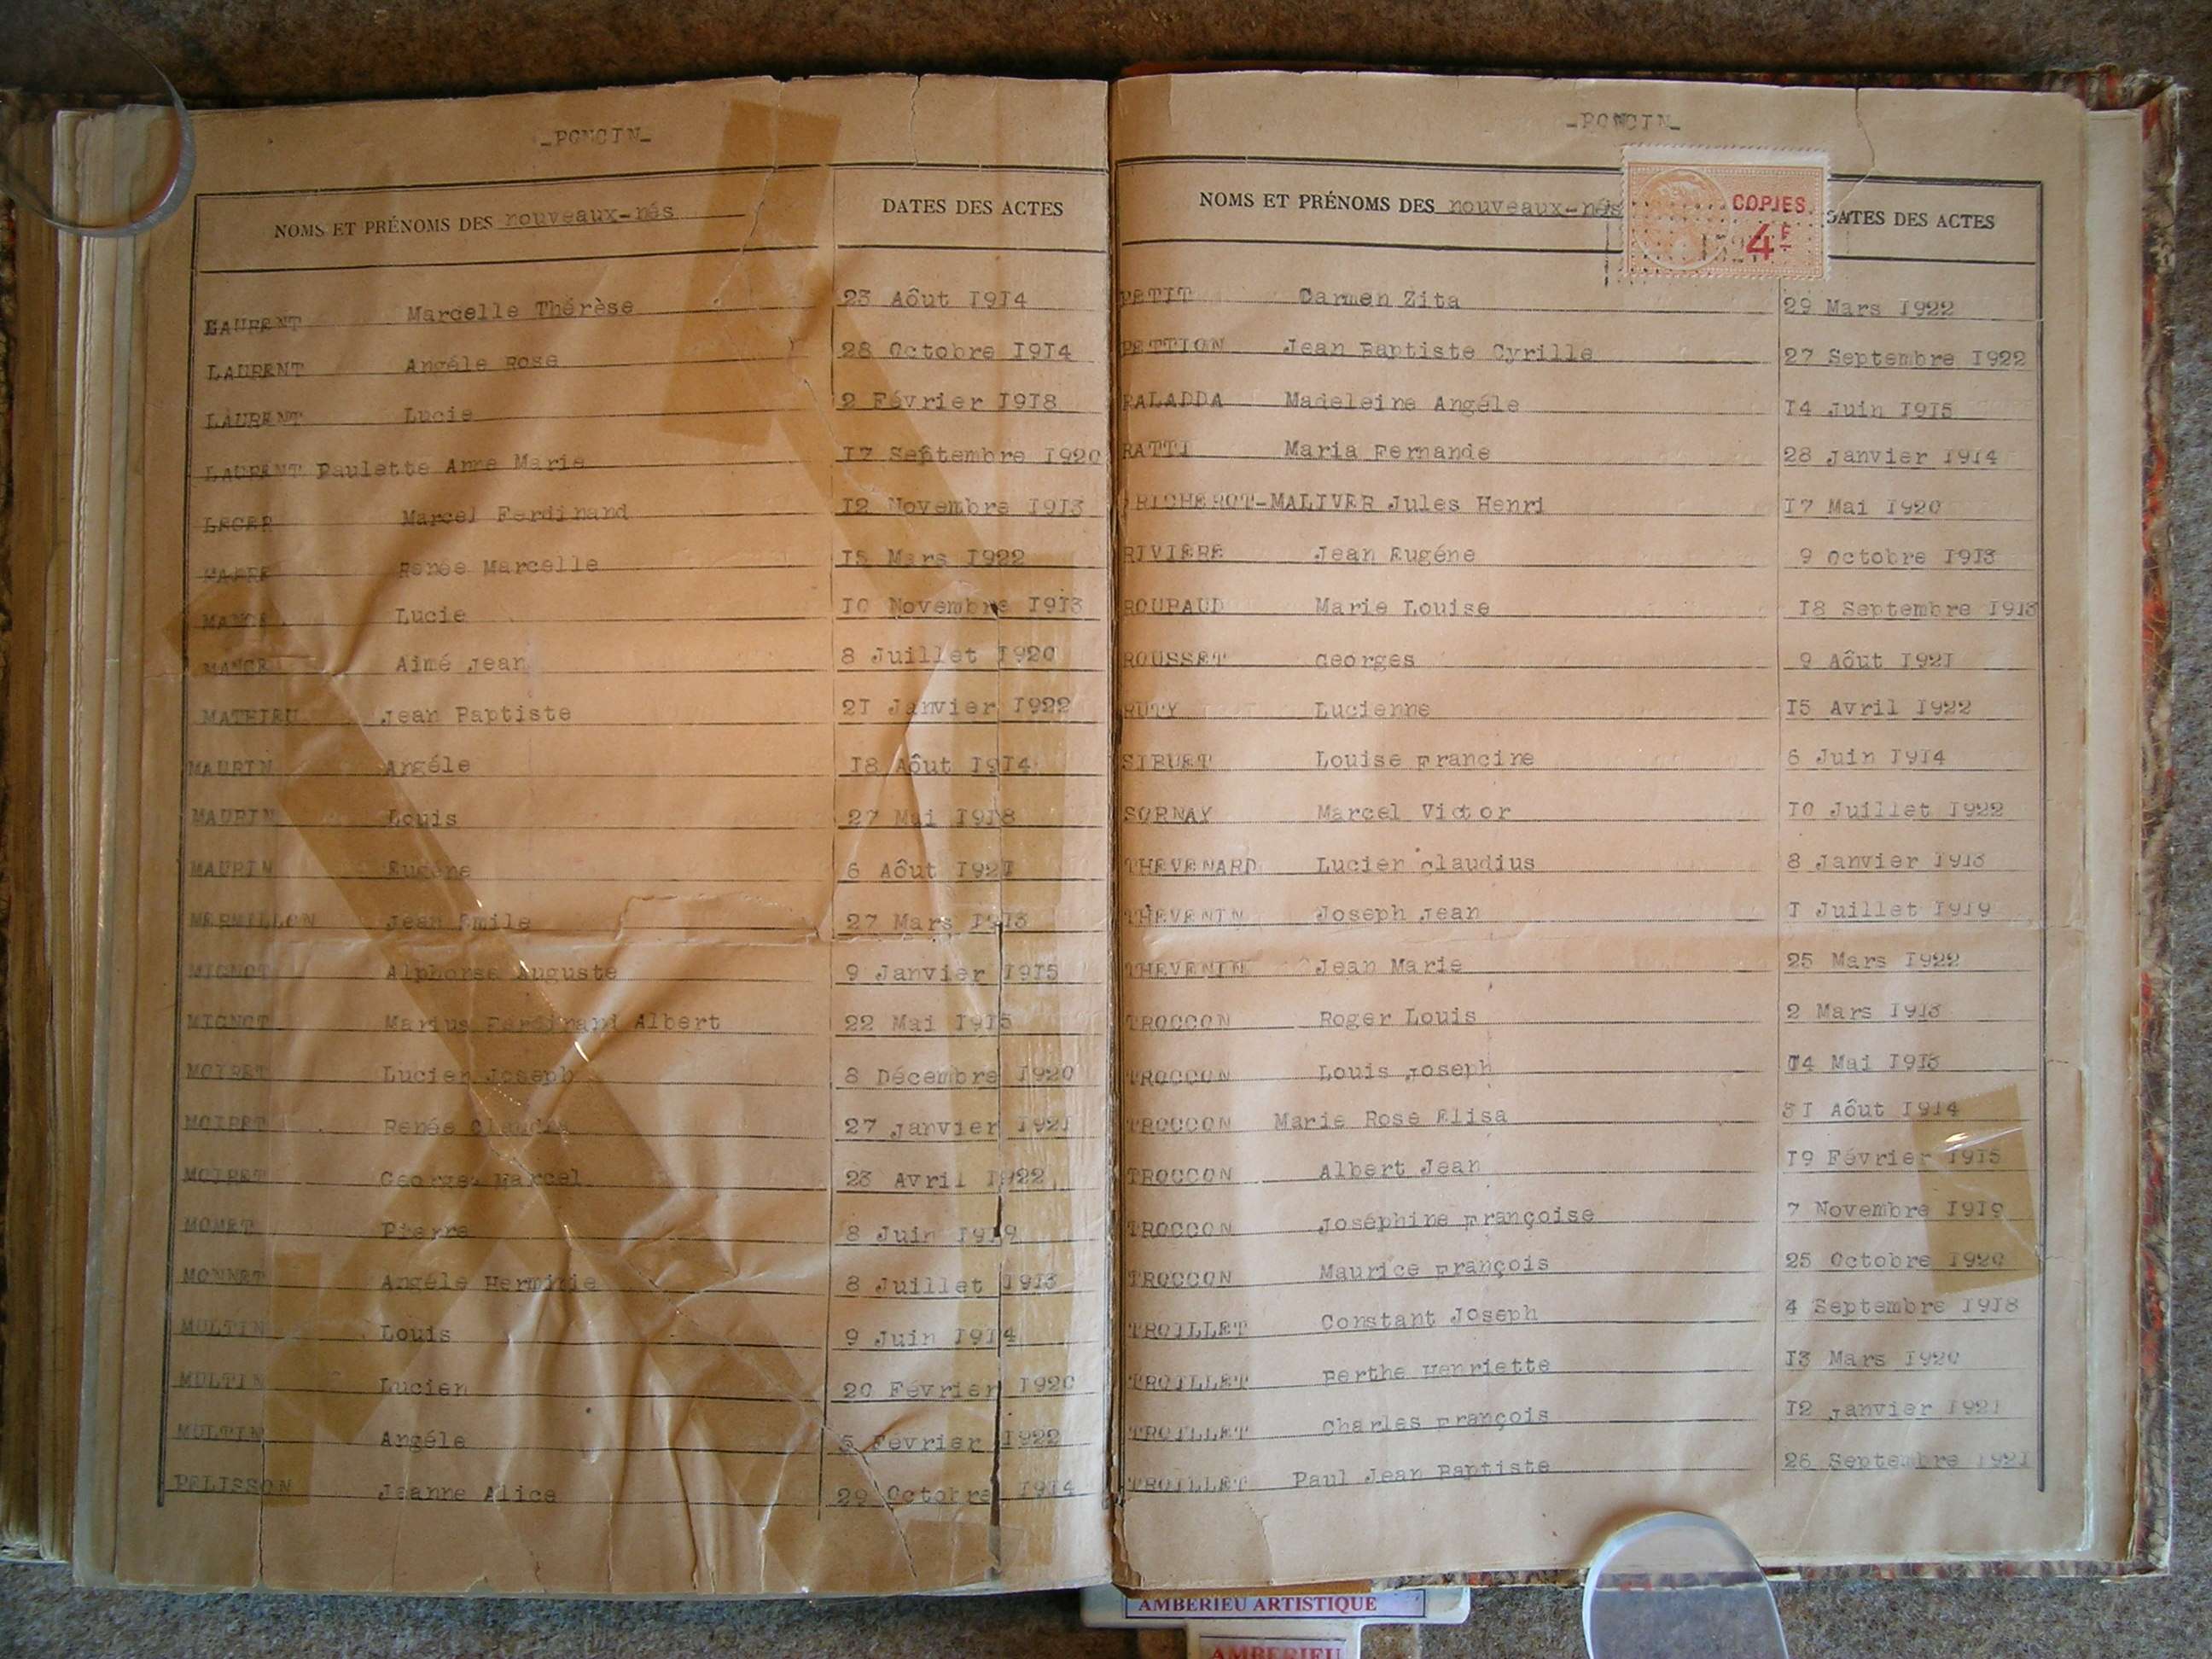 -PONCIN-
NOMS ET PRÉNOMS DES nouveaux-nés DATES DES ACTES
LAURENT Marcelle Thérèse 23 Aôut I9I4
LAURENT Angéle Rose 28 Octobre I9I4
LAURENT Lucie 2 Février I9I8
LAURENT Paulette Anne Marie I7 Septembre I920
LEGER Marcel Ferdinand I2 Novembre I9I3
Renée Marcelle I5 Mars I922
Lucie I0 Novembre I9I3
Aimé Jean 8 Juillet I920
MATHIEU Jean Baptiste 2I Janvier I922
MAURIN Angéle I8 Aôut I9I4
MAURIN Louis 27 Mai I9I8
MAURIN Eugène 6 Aôut I92I
MERMILLON Jean Emile 27 Mars I9I3
MIGNOT Alphonse Auguste 9 Janvier I9I5
MIGNOT Marius Ferdinand Albert 22 Mai I9I5
MOIRET Lucien Joseph 8 Décembre I920
MOIRET Renée Claudia 27 Janvier I92I
MOIRET Georges Marcel 23 Avril I922
Pierre 8 Juin I9I9
MONNET Angéle Herminie 8 Juillet I9I3
MULTIN Louis 9 Juin I9I4
MULTIN Lucien 20 Février I920
MULTIN Angéle 5 Février I922
PELISSON Jeanne Alice 29 Octobre I9I4
-PONCIN-
NOMS ET PRÉNOMS DES nouveaux-nés DATES DES ACTES
COPIES
4F
PETIT Carmen Zita 29 Mars I922
PETTION Jean Baptiste Cyrille 27 Septembre I922
RALADDA Madeleine Angéle I4 Juin I9I5
RATTI Maria Fernande 28 Janvier I9I4
RICHEROT-MALIVER Jules Henri I7 Mai I920
RIVIERE Jean Eugéne 9 Octobre I9I3
ROUPAUD Marie Louise I8 Septembre I9I3
ROUSSET Georges 9 Aôut I92I
RUTY Lucienne I5 Avril I922
SIBUET Louise Francine 6 Juin I9I4
SORNAY Marcel Victor I0 Juillet I922
THEVENARD Lucien Claudius 8 Janvier I9I3
THEVENIN Joseph Jean I Juillet I9I9
THEVENIN Jean Marie 25 Mars I922
TROCCON Roger Louis 2 Mars I9I3
TROCCON Louis Joseph I4 Mai I9I3
TROCCON Marie Rose Elisa 3I Aôut I9I4
TROCCON Albert Jean I9 Février I9I5
TROCCON Joséphine Françoise 7 Novembre I9I9
TROCCON Maurice François 25 Octobre I920
TROILLET Constant Joseph 4 Septembre I9I8
TROILLET Berthe Henriette I3 Mars I920
TROILLET Charles François I2 Janvier I92I
TROILLET Paul Jean Baptiste 26 Septembre I92I
AMBERIEU ARTISTIQUE
AMBERIEU